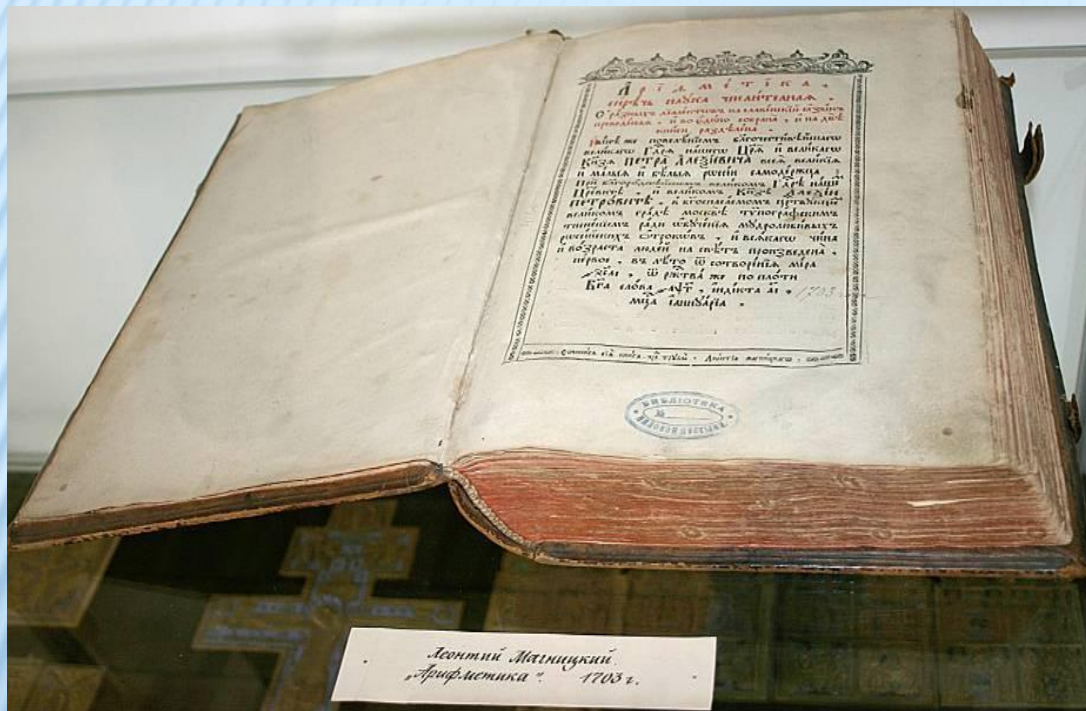 Арїѳметїка,
сирѣчь наука числителная.
С разныхъ дїалектовъ на славенскїй ѧзыкъ
преведеная, и во едино собрана, и на двѣ
книги раздѣлена.
Нн҃ѣ же повелѣнїемъ бл҃гочестивѣйшагѡ
великагѡ Гдⷭ҇рѧ нашегѡ Цр҃ѧ и великагѡ
Кнѧзѧ ПЕТРА АЛЕѮІЕВИЧА всеѧ великїѧ
и малыѧ и бѣлыѧ рѡссїи самодержца:
При великомъ Гдⷭ҇рѣ нашемъ
Цр҃евичѣ, и великомъ Кнѧзѣ АЛЕѮІИ
ПЕТРОВИЧѢ, в бг҃оспасаемомъ црⷭ҇твующемъ
великомъ градѣ москвѣ тѵпографскимъ
тисненїемъ ради ѡбученїѧ мудролюбивыхъ
рѡссїйскихъ ѻтрокѡвъ, и всѧкагѡ чина
и возраста людей на свѣтъ произведена,
первое, въ лѣто ѿ сотворенїѧ мїра
҂зс҃аі, ѿ ржⷭ҇тва же по плоти
Бг҃а слова ҂аѱ҃г, индїкта аі҃ 1703
мцⷭ҇а їаннуарїа.
Сочинисѧ сїѧ книга чрез труды Леѡнтїа магницкагѡ.
БИБЛІОТЕКА
Леонтий Магницкий
„Арифметика". 1703 г.